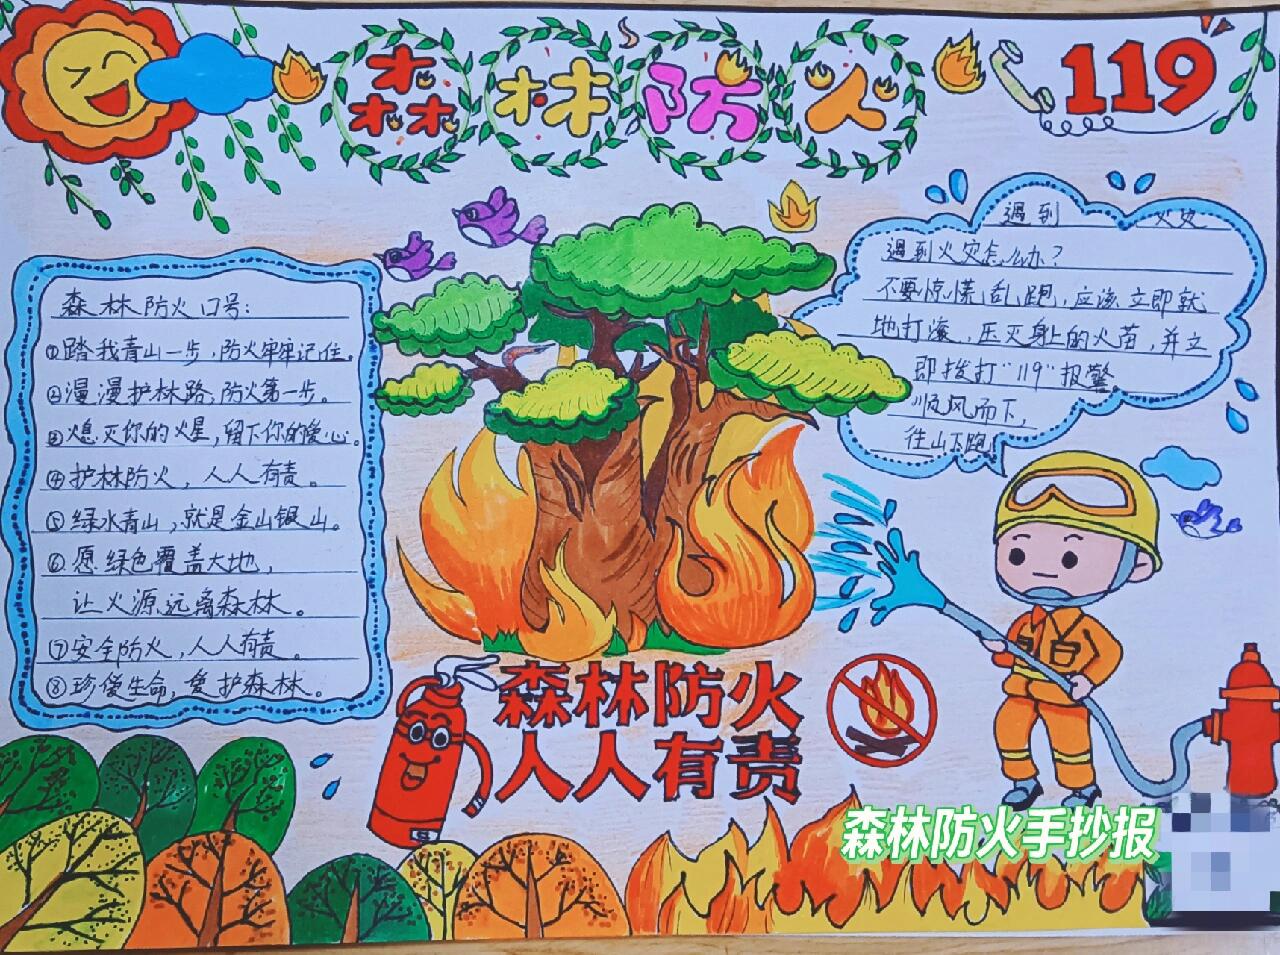 森林防火
119
森林防火口号:
①踏我青山一步,防火牢牢记住。
②漫漫护林路,防火第一步。
③熄灭你的火星,留下你的爱心。
④护林防火,人人有责。
⑤绿水青山,就是金山银山。
⑥愿绿色覆盖大地,
让火源远离森林。
⑦安全防火,人人有责。
⑧珍爱生命,爱护森林。
遇到 火灾
遇到火灾怎么办?
不要惊慌乱跑,应该立即就
地打滚,压灭身上的火苗,并立
即拨打"119"报警。
顺风而下,
往山下跑!
森林防火
人人有责
森林防火手抄报